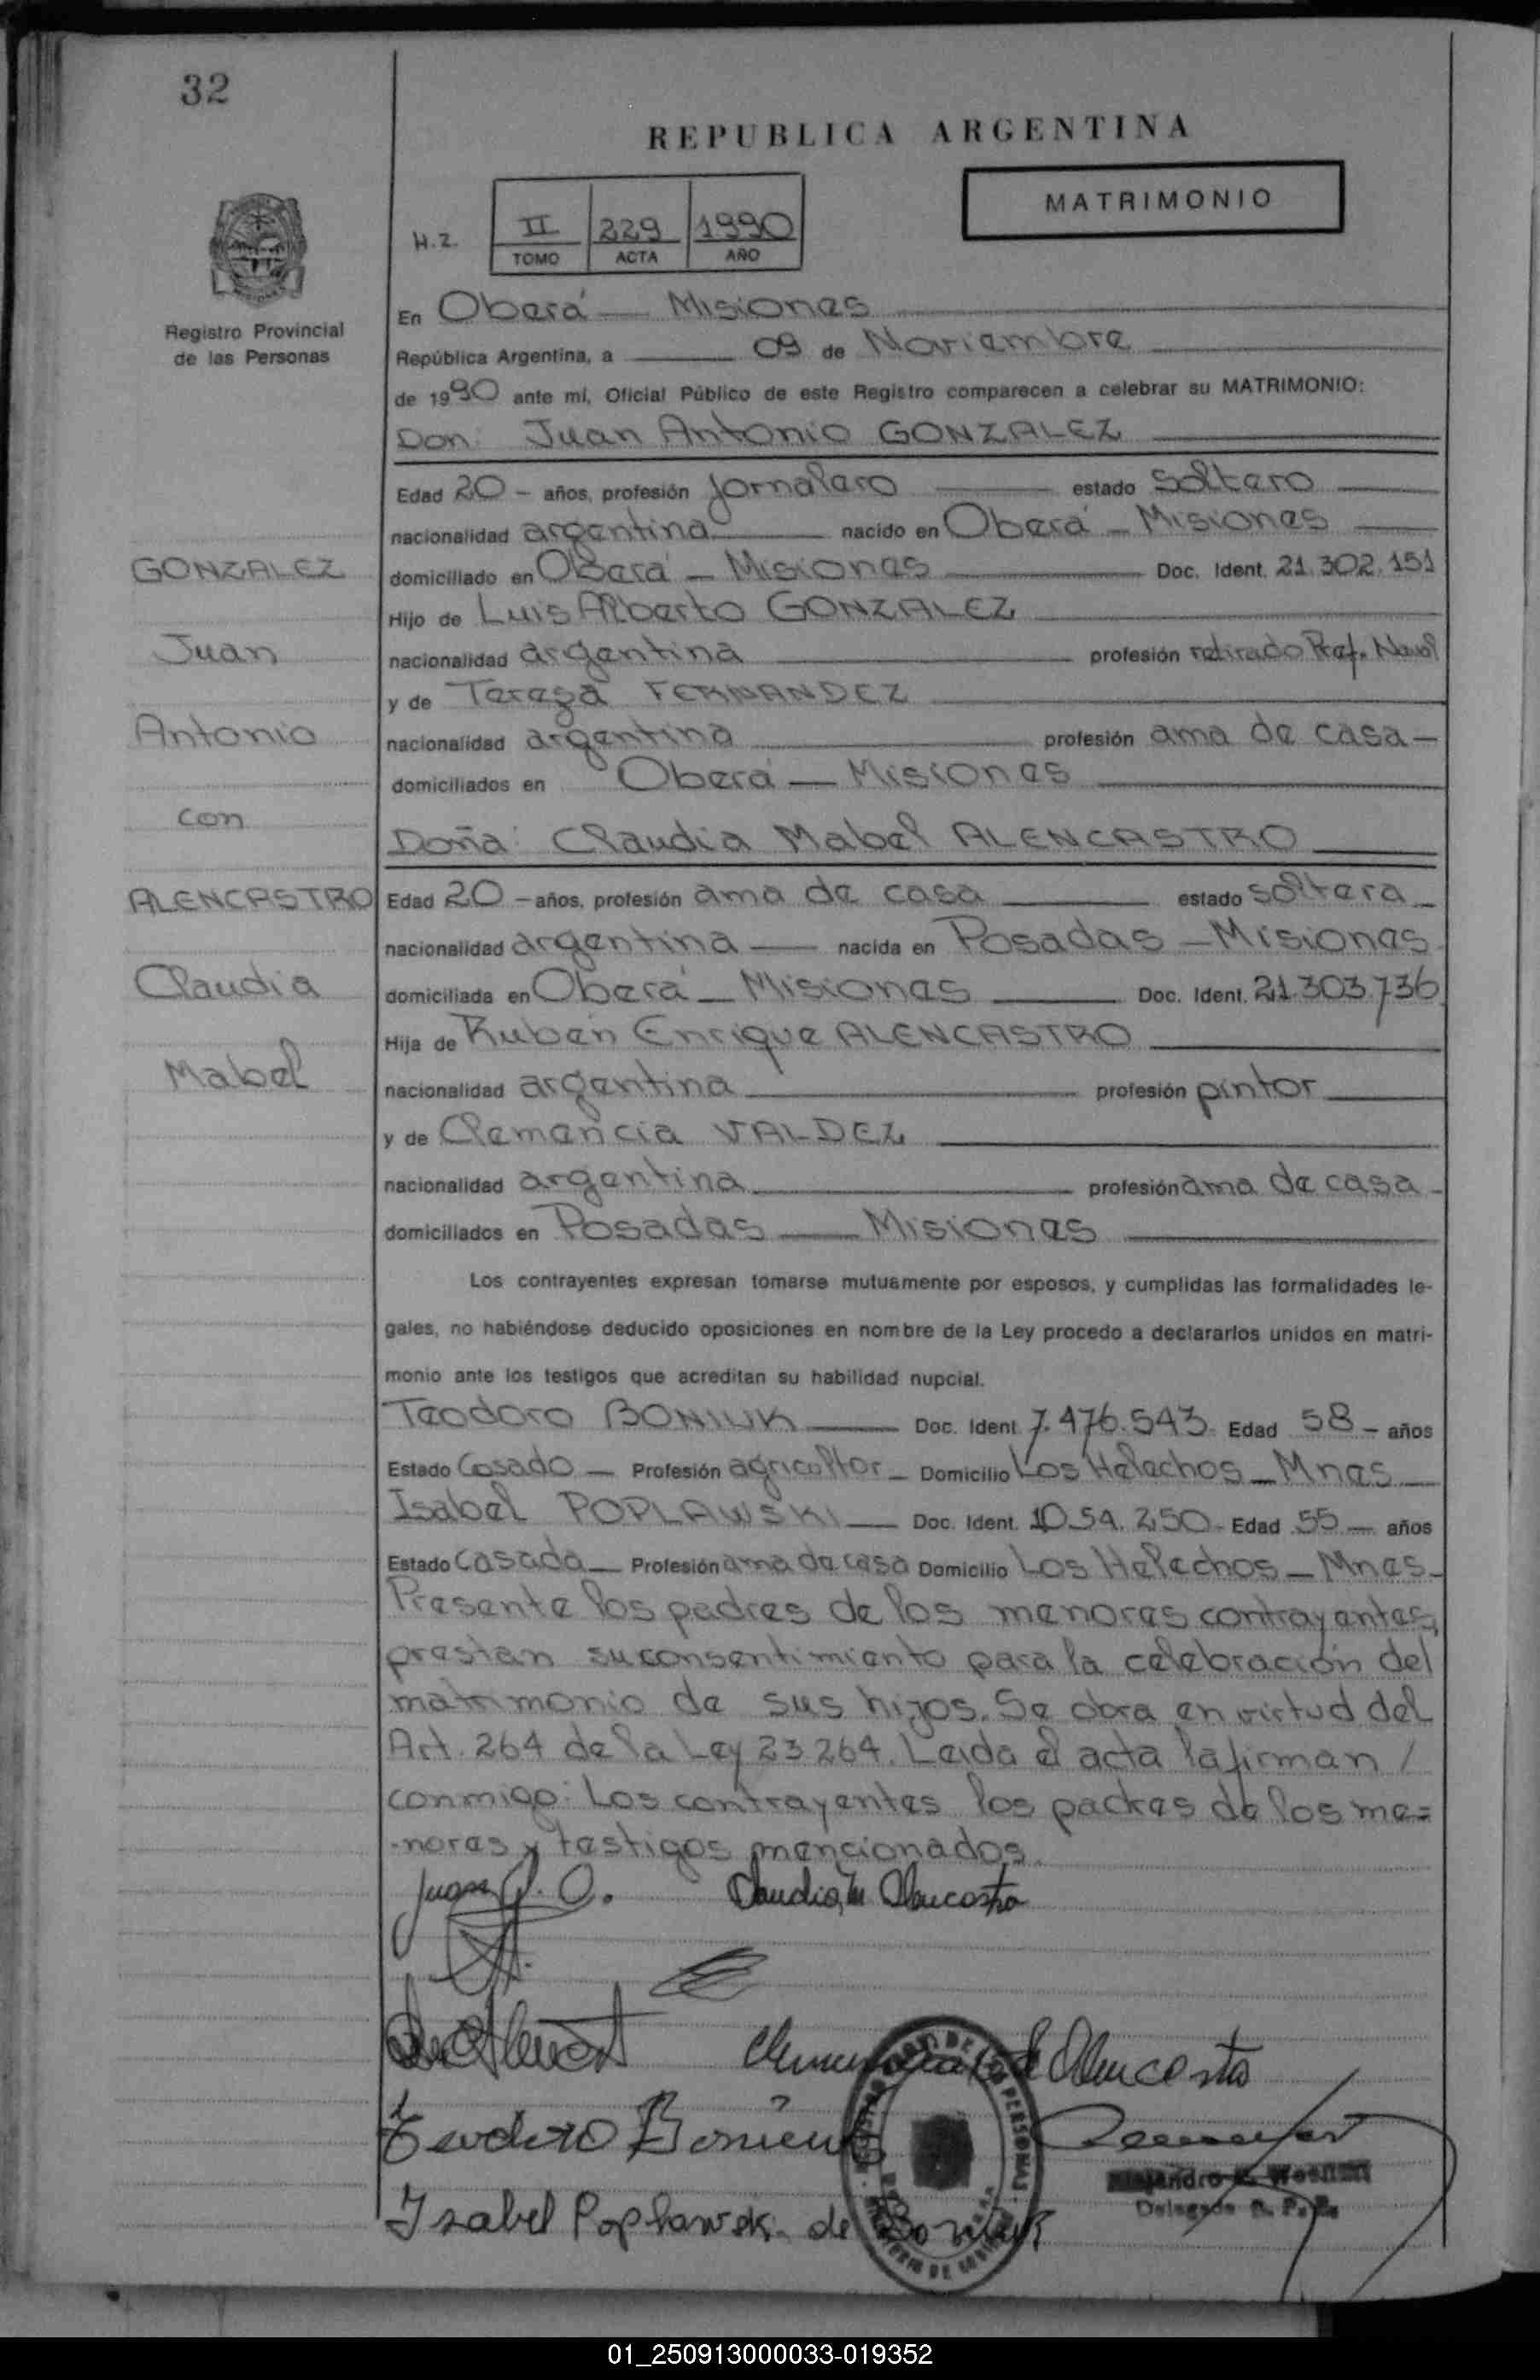 32
REPUBLICA ARGENTINA
MATRIMONIO
H.Z.
II 229 1990
TOMO ACTA AÑO
Registro Provincial
de las Personas
En Oberá — Misiones
República Argentina, a 09 de Noviembre
de 1990 ante mí, Oficial Público de este Registro comparecen a celebrar su MATRIMONIO:
Don: Juan Antonio GONZALEZ
Edad 20 - años, profesión Jornalero estado soltero
nacionalidad argentina nacido en Oberá - Misiones
GONZALEZ
domiciliado en Oberá - Misiones Doc. Ident. 21.302.151
Hijo de Luis Alberto GONZALEZ
Juan
nacionalidad argentina profesión retirado Pref. Naval
y de Teresa FERNANDEZ
Antonio
nacionalidad argentina profesión ama de casa -
domiciliados en Oberá — Misiones
con
Doña: Claudia Mabel ALENCASTRO
ALENCASTRO
Edad 20 - años, profesión ama de casa estado soltera
nacionalidad argentina nacida en Posadas - Misiones
Claudia
domiciliada en Oberá - Misiones Doc. Ident. 21.303.736
Hija de Rubén Enrique ALENCASTRO
Mabel
nacionalidad argentina profesión pintor
y de Clemencia VALDEZ
nacionalidad argentina profesión ama de casa
domiciliados en Posadas — Misiones
Los contrayentes expresan tomarse mutuamente por esposos, y cumplidas las formalidades le-
gales, no habiéndose deducido oposiciones en nombre de la Ley procedo a declararlos unidos en matri-
monio ante los testigos que acreditan su habilidad nupcial.
Teodoro BONIUK Doc. Ident. 7.476.543. Edad 58 - años
Estado Casado - Profesión agricultor - Domicilio Los Helechos - Mnes
Isabel POPLAWSKI Doc. Ident. Edad 55 - años
Estado Casada - Profesión ama de casa Domicilio Los Helechos - Mnes -
Presente los padres de los menores contrayentes,
prestan su consentimiento para la celebración del
matrimonio de sus hijos. Se obra en virtud del
Art. 264 de la Ley 23264. Leida el acta la firman /
conmigo: Los contrayentes los padres de los me=
-nores y testigos mencionados.
Juan
Claudia M. Alencastro
Teodoro Boniuk
Isabel Poplawski de Boniuk
Delegado R. P. P.
01_250913000033-019352